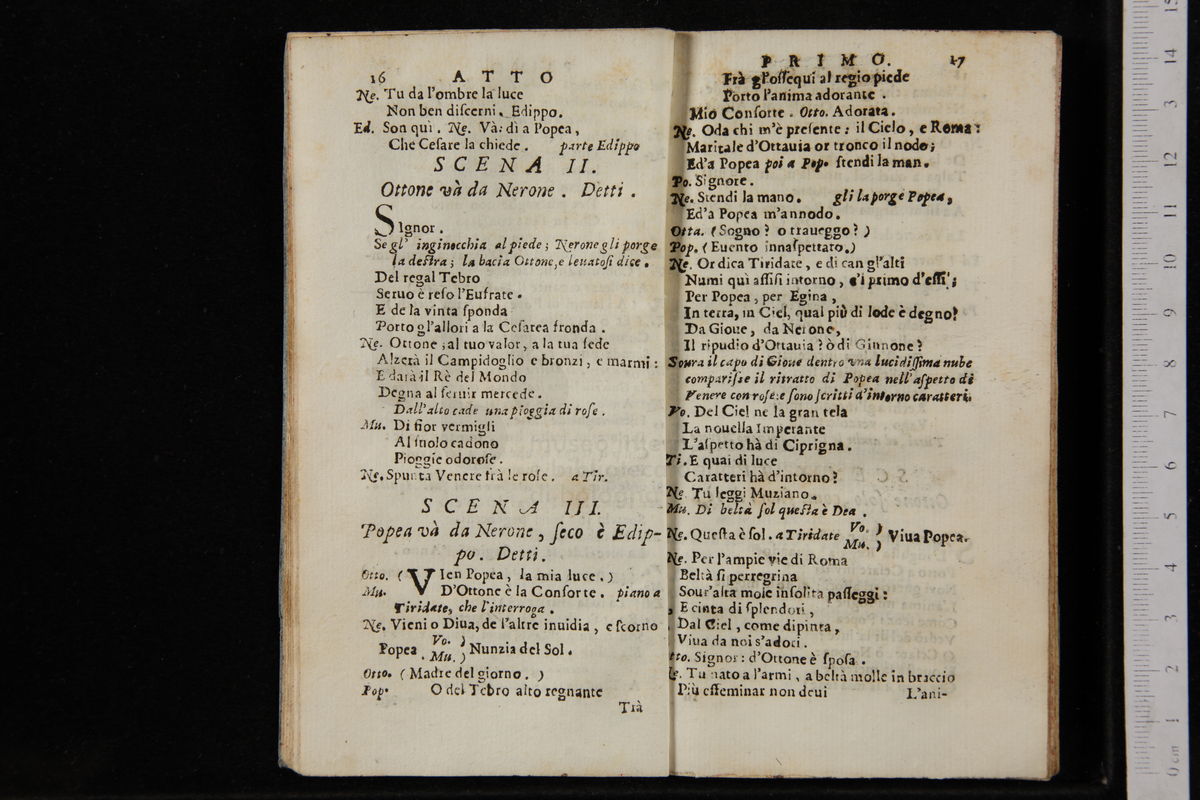 16 ATTO
Ne. Tu da l'ombre la luce
Non ben diſcerni. Edippo.
Ed. Son quì. Ne. Và: dì a Popea,
Che Ceſare la chiede. parte Edippo
SCENA II.
Ottone và da Nerone. Detti.
SIgnor.
Se gl' inginocchia al piede; Nerone gli porge
la deſtra; la bacia Ottone, e leuatoſi dice.
Del regal Tebro
Seruo è reſo l'Eufrate.
E de la vinta ſponda
Porto gl'allori a la Ceſarea fronda.
Ne. Ottone; al tuo valor, a la tua fede
Alzerà il Campidoglio e bronzi, e marmi:
E darà il Rè del Mondo
Degna al ſeruir mercede.
Dall'alto cade una pioggia di roſe.
Mu. Di fior vermigli
Al ſuolo cadono
Pioggie odoroſe.
Ne. Spunta Venere frà le roſe. a Tir.
SCENA III.
Popea và da Nerone, ſeco è Edip-
po. Detti.
Otto. (VIen Popea, la mia luce.)
Mu. D'Ottone è la Conſorte. piano a
Tiridate, che l'interroga.
Ne. Vieni o Diua, de l'altre inuidia, e ſcorno
Popea. Vo. Mu. ) Nunzia del Sol.
Otto. (Madre del giorno.)
Pop. O del Tebro alto regnante
Trà
PRIMO. 17
Frà gl'oſſequi al regio piede
Porto l'anima adorante.
Mio Conſorte. Otto. Adorata.
Ne. Oda chi m'è preſente: il Cielo, e Roma:
Maritale d'Ottauia or tronco il nodo;
Ed'a Popea poi a Pop. ſtendi la man.
Po. Signore.
Ne. Stendi la mano. gli la porge Popea,
Ed'a Popea m'annodo.
Otta. (Sogno? o traueggo?)
Pop. (Euento innaſpettato.)
Ne. Or dica Tiridate, e di can gl'alti
Numi quì aſſiſi intorno, e'i primo d'eſſi;
Per Popea, per Egina,
In terra, in Ciel, qual più di lode è degno?
Da Gioue, da Nerone,
Il ripudio d'Ottauia? ò di Giunnone?
Soura il capo di Gioue dentro vna lucidiſſima nube
compariſce il ritratto di Popea nell'aſpetto di
Venere con roſe: e ſono ſcritti d'intorno caratteri.
Vo. Del Ciel ne la gran tela
La nouella Imperante
L'aſpetto hà di Ciprigna.
Ti. E quai di luce
Caratteri hà d'intorno?
Ne. Tu leggi Muziano.
Mu. Di beltà ſol queſta è Dea.
Ne. Queſta è ſol. a Tiridate Vo. Mu. ) Viua Popea.
Ne. Per l'ampie vie di Roma
Beltà ſi perregrina
Sour'alta mole inſolita paſſeggi:
E cinta di ſplendori,
Dal Ciel, come dipinta,
Viua da noi s'adori.
tto. Signor: d'Ottone è ſpoſa.
Ne. Tu nato a l'armi, a beltà molle in braccio
Più effeminar non deui
L'ani-